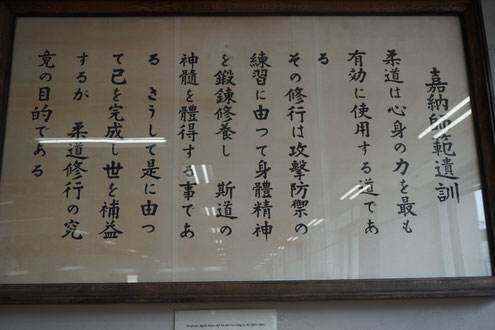 嘉納師範遺訓
柔道は心身の力を最も
有効に使用する道であ
る
その修行は攻撃防禦の
練習に由つて身體精神
を鍛錬修養し 斯道の
神髓を體得する事であ
る さうして是に由つ
て己を完成し世を補益
するが 柔道修行の究
竟の目的である